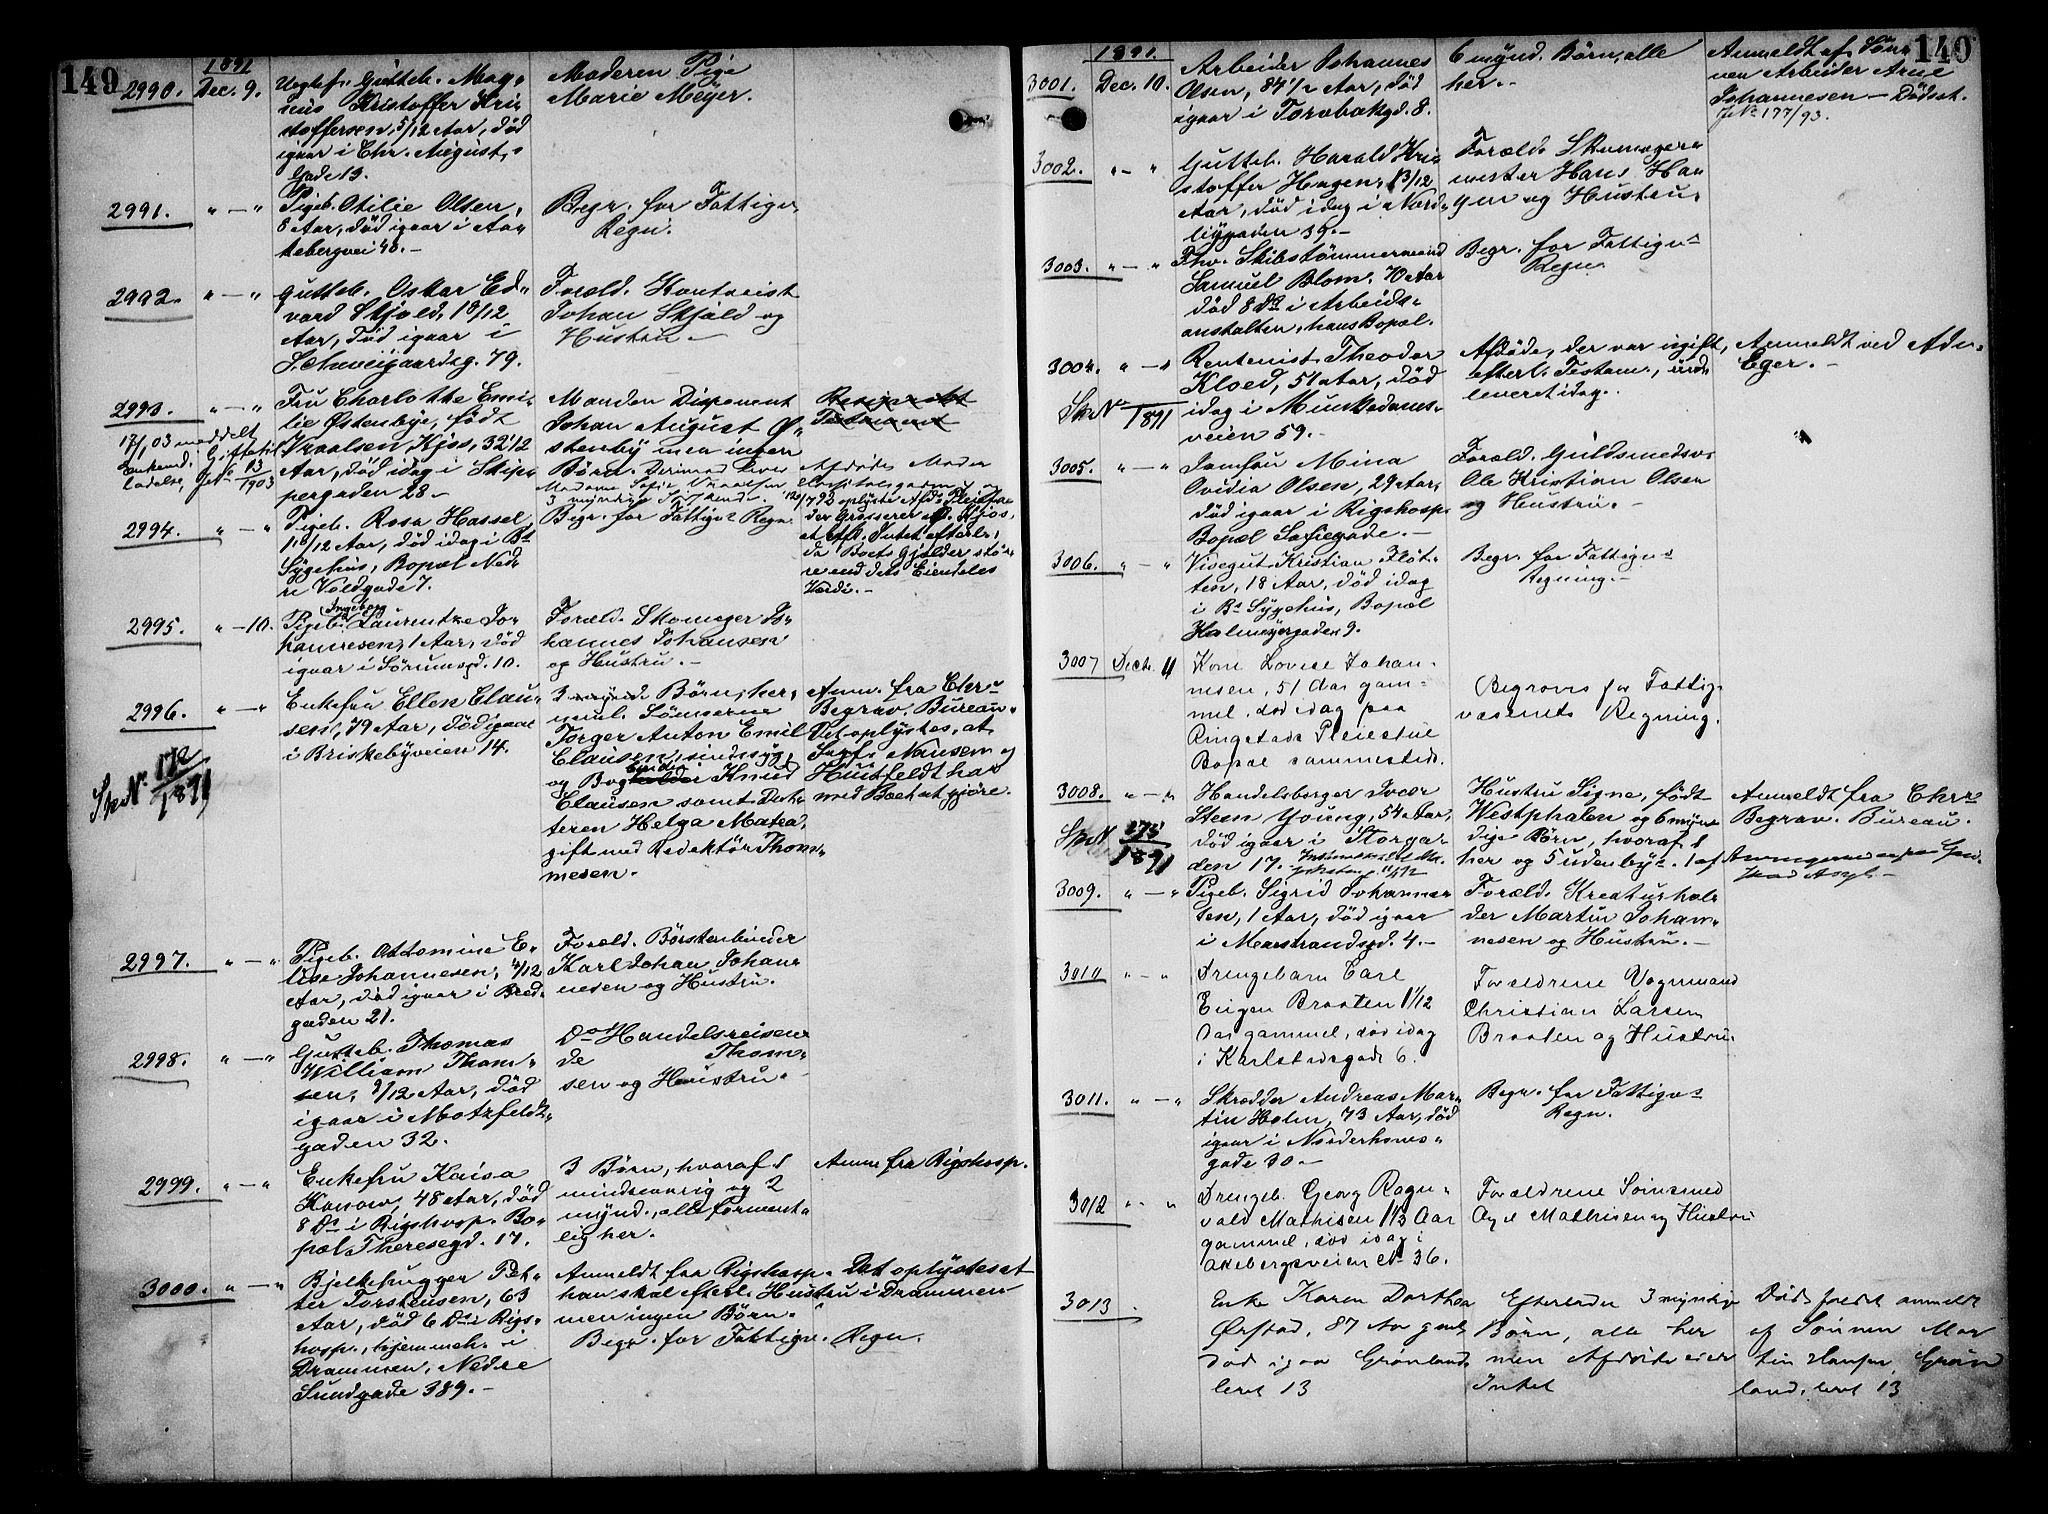 149
1891
2990. Dec. 9. Uegtef. Gutteb. Mag-
nus Kristoffer Kri-
stoffersen, 5/12 Aar, död
igaar i Chr. August
Gade 13.
Moderen Pige
Marie Meyer.
2991. " — " Pigeb. Otilie Olsen,
8 Aar, död igaar i Aa-
kebergvei 40.—
Begr. for Fattigv.
Regn.
2992. " — " Gutteb. Oskar Ed-
vard Skjold, 10/12
Aar, död igaar i
Schweigaardsg. 79.
Foræld. Kontorist
Johan Skjold og
Hustru —
2993. " — " Fru Charlotthe Emi-
lie Østenbye, födt
Vraalsen Kjos, 32 1/2
Aar, död idag i Skip-
pergaden 28 —
17/1 03 meddelt
Enkemd. Giftetil-
ladelse, J.No 13/1903
Manden Disponent
Johan August Ø-
stenby men ingen
Börn. Derimod lever Afdödes Moder
Madame Sofie Vraalsen Hospitalsgaden og
3 myndige Søskende.
Besiguelt
Testament
oplyste Afd. Pleiefa-
der Grosserer Kjos,
at Afd. Intet efterl.,
da Boets Gjelder stör-
re end dets Eiendeles
Værdi.—
2994. " — " Pigeb. Rosa Hassel
1 10/12 Aar, död idag i Bs
Sygehus, Bopæl Ned-
re Voldgade 7.
Begr. for Fattigvs Regn.
2995. " — 10. Pigeb. Ingeborg Laurentze Jo-
hannesen, 1 Aar, död
igaar i Sörumsgd. 10.
Foræld. Skomager Jo-
hannes Johansen
og Hustru.—
2996. " — " Enkefru Ellen Clau-
sen, 79 Aar, död igaar
i Briskebyveien 14.
Sk.No. 172/1891
3 mynd. Börn, her,
neml. Sönnerne
Torger Anton Emil
Clausen, sindssyg,
og Bogbinder Knud
Clausen samt Dat-
teren Helga Matea,
gift med Redaktör Thom-
mesen.
Anm. fra Chr.
Begrav. Bureau.
Det oplystes, at
Sagf. Nansen og
Huitfeldt har
med Boet at gjöre.
2997. " — " Pigeb. Ottomine E-
lise Johannesen, 4/12
Aar, död igaar i Bred-
gaden 21.
Foræld. Börstenbinder
Karl Johan Johan-
nesen og Hustru.
2998. " — " Gutteb. Thomas
William Thom-
sen, 9/12 Aar, död
igaar i Motzfeldts-
gaden 32.
Do Handelsreisen-
de Thom-
sen og Hustru.
2999. " — " Enkefru Kaisa
Konow, 48 Aar, död
8 Ds i Rigshosp. Bo-
pæl Theresegd. 17.
3 Börn, hvoraf 1
mindreaarig og 2
mynd., alle forment-
lig her.
Anm. fra Rigshosp.
3000. " — " Bjelkehugger Pet-
ter Torstensen, 63
Aar, död 6 Ds i Rigs-
hosp., hjemmeh. i
Drammen, Nedre
Sundgade 389.—
Anmeldt fra Rigshosp. Det oplystes at
han skal efterl. Hustru i Drammen
men ingen Börn.
Begr. for Fattigv. Regn.
140
1891.
3001. Dec. 10. Arbeider Johannes
Olsen, 84 1/2 Aar, död
igaar i Torvbakgd. 8.
6 mynd. Börn, alle
her.—
Anmeldt af Sön-
nen Arbeider Arne
Johannesen — Dödsat.
J.No 177/93.
3002. " — " Gutteb. Harald Kri-
stoffer Hagen, 13/12
Aar, död idag i Nord-
liggaden 39.—
Foræld. Skomager-
mester Hans Ha-
gen og Hustru.
3003. " — " Fhv. Skibstömmermand
Samuel Blom, 70 Aar
död 8 Ds i Arbeids-
anstalten, hans Bopæl.
Begr. for Fattigvs
Regn.
3004. " — " Rentenist Theodor
Kloed, 51 Aar, död
idag i Munkedams-
veien 59.—
Sk.No /1891
Afdöde, der var ugift,
efterl. Testam., ind-
leveret idag.
Anmeldt ved Adv.
Eger.—
3005. " — " Jomfru Mina
Ovidia Olsen, 29 Aar,
död igaar i Rigshosp.
Bopæl Sofiegade.—
Foræld. Guldsmedsv.
Ole Kristian Olsen
og Hustru.—
3006. " — " Visegut Kristian Flöt-
ten, 18 Aar, död idag
i Bs Sygehus, Bopæl
Holmeyergaden 9.
Begr. for Fattigvs
Regning.—
3007 Decbr. 11 Kone Lovise Johan-
nesen, 51 Aar gam-
mel, död idag paa
Ringstads Pleiestue
Bopæl sammesteds.
Begraves for Fattig-
væsenets Regning.
3008. " — " Handelsborger Iver
Steen Young, 54 Aar,
död igaar i Storga-
den 17.
Sk.N 173/1891
Hustru Signe, födt
Westphalen og 6 myn-
dige Börn, hvoraf 1
her og 5 udenbys. 1 af
Anmeldt fra Chr.
Begrav. Bureau.
Asyl.—
3009. " — " Pigeb. Sigrid Johanne-
sen, 1 Aar, död igaar
i Marstrandsgd. 4.—
Foræld. Kreaturhol-
der Martin Johan-
nesen og Hustru.—
3010 " — " Drengebarn Carl
Eugen Braaten 1 1/12
Aar gammel, död idag
i Karlstadsgade 6.
Forældrene Vognmand
Christian Larsen
Braaten og Hustru.
3011. " — " Skrædder Andreas Mar-
tin Holm, 73 Aar, död
igaar i Norderhovs-
gade 30.—
Begr. for Fattigvs
Regn.
3012 " — " Drengeb. Georg Ragn-
vald Mathisen 1 1/3 Aar
gammel, död idag i
Akebergsveien No 36.
Forældrene Svinesmed
Axel Mathisen og Hustru
3013 Enke Karen Dorthea
Ørstad, 87 Aar gml,
död igaar Grønlands
leret 13
Efterlader 3 myndige
Börn, alle her
men Afdöde eier
Intet
Dødsfaldet anmeldt
af Sönnen Mar
tin Hansen, Grøn
lands leret 13